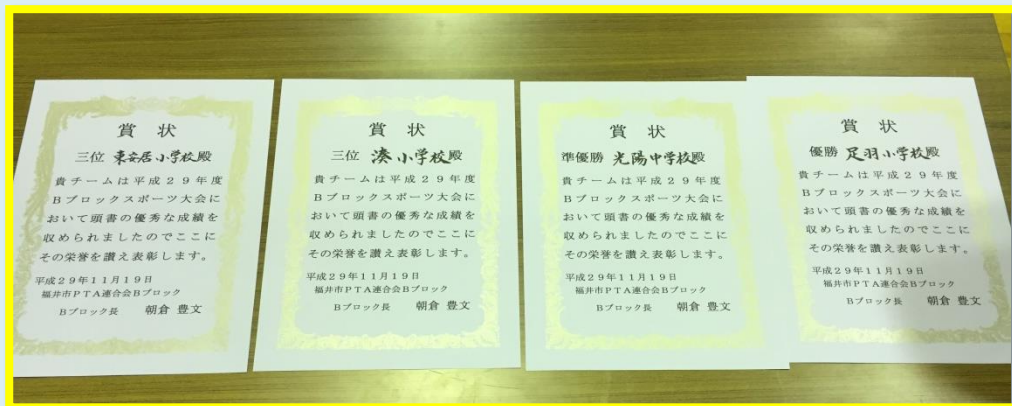 賞状
三位 東安居小学校殿
貴チームは平成29年度
Bブロックスポーツ大会に
おいて頭書の優秀な成績を
収められましたのでここに
その栄誉を讃え表彰します。
平成29年11月19日
福井市PTA連合会Bブロック
Bブロック長 朝倉 豊文
賞状
三位 湊小学校殿
貴チームは平成29年度
Bブロックスポーツ大会に
おいて頭書の優秀な成績を
収められましたのでここに
その栄誉を讃え表彰します。
平成29年11月19日
福井市PTA連合会Bブロック
Bブロック長 朝倉 豊文
賞状
準優勝 光陽中学校殿
貴チームは平成29年度
Bブロックスポーツ大会に
おいて頭書の優秀な成績を
収められましたのでここに
その栄誉を讃え表彰します。
平成29年11月19日
福井市PTA連合会Bブロック
Bブロック長 朝倉 豊文
賞状
優勝 足羽小学校殿
貴チームは平成29年度
Bブロックスポーツ大会に
おいて頭書の優秀な成績を
収められましたのでここに
その栄誉を讃え表彰します。
平成29年11月19日
福井市PTA連合会Bブロック
Bブロック長 朝倉 豊文